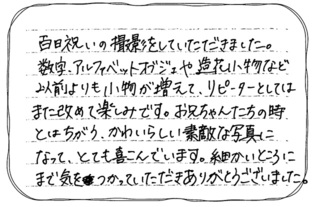 百日祝いの撮影をしていただきました。
数字、アルファベットオブジェや造花小物など
以前よりも小物が増えて、リピーターとしては
また改めて楽しみです。お兄ちゃんたちの時
とはちがう、かわいらしい素敵な写真に
なって、とても喜こんでいます。細かいところに
まで気をつかっていただきありがとうございました。